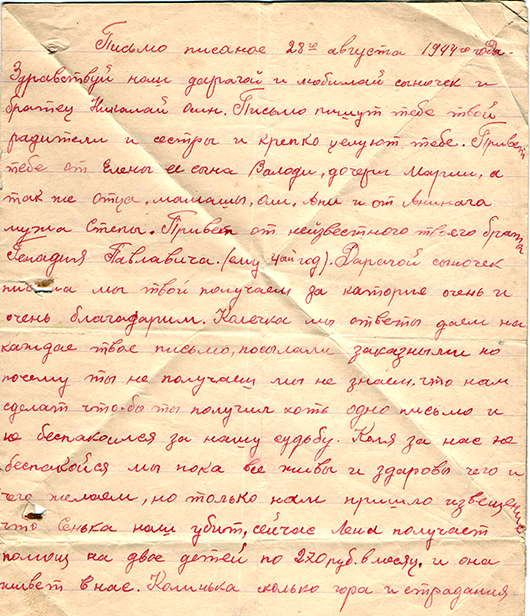 Письмо писаное 28го августа 1944го года.
Здравствуй наш дарагой и любимай сыночек и
братец Николай Письмо пишут тебе твои
радители и сестры и крепко целуют тебе. Привет
тебе от Елены ее сына Валоди, дочери Марии, а
так же отца, мамашы, Оли, Ани и от Анинага
мужа Степы. Привет от неизвестного твоего брата
Генадия Павлавича. (ему 4ый год). Дарагой сыночек
письма мы твои получаем за каторие очень и
очень благадарим. Колечка мы ответы даем на
каждае твое письмо, посылали заказными но
почему ты не получаеш мы не знаем. что нам
сделат что-бы ты получил хоть одно письмо и
не беспакоился за нашу судьбу. Коля за нас не
беспакойся мы пока все живы и здаровы чего и
чего желаем, но только нам пришло извещение
что Сенька наш убит, сейчас Лена получает
помощ на двое детей по 270 руб. в месяц, и она
живет в нас. Колинька сколько гора и страдания